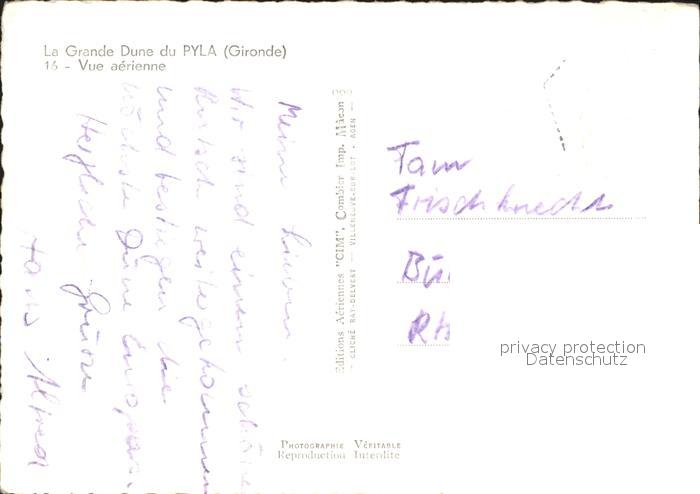 La Grande Dune du PYLA (Gironde)
16 - Vue aérienne
Meine Lieben.
Wir sind einen schönen
Rutsch weitergekommen
und besteigen die
höchste Düne Europas.
Herzliche Grüsse
Hans Alfred
Editions Aériennes "CIM", Combier Imp. Mâcon
CLICHÉ RAY-DELVERT — VILLENEUVE-SUR-LOT - AGEN —
Fam
Frischknecht
Bü
Rh
privacy protection
Datenschutz
PHOTOGRAPHIE VÉRITABLE
Reproduction Interdite